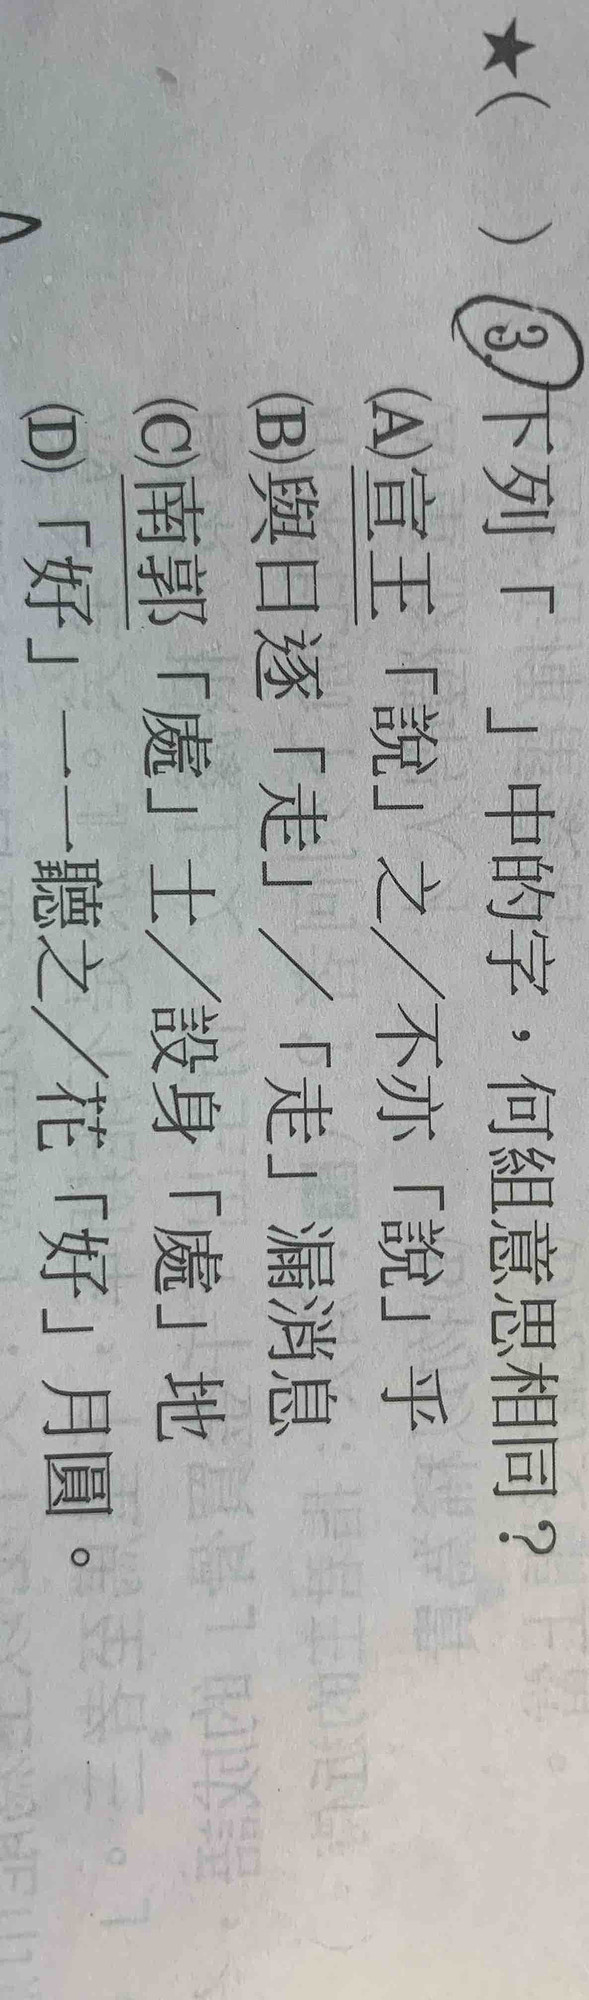 ★(　)3.下列「　」中的字，何組意思相同？
(A)宣王「說」之／不亦「說」乎
(B)與日逐「走」／「走」漏消息
(C)南郭「處」士／設身「處」地
(D)「好」一一聽之／花「好」月圓。